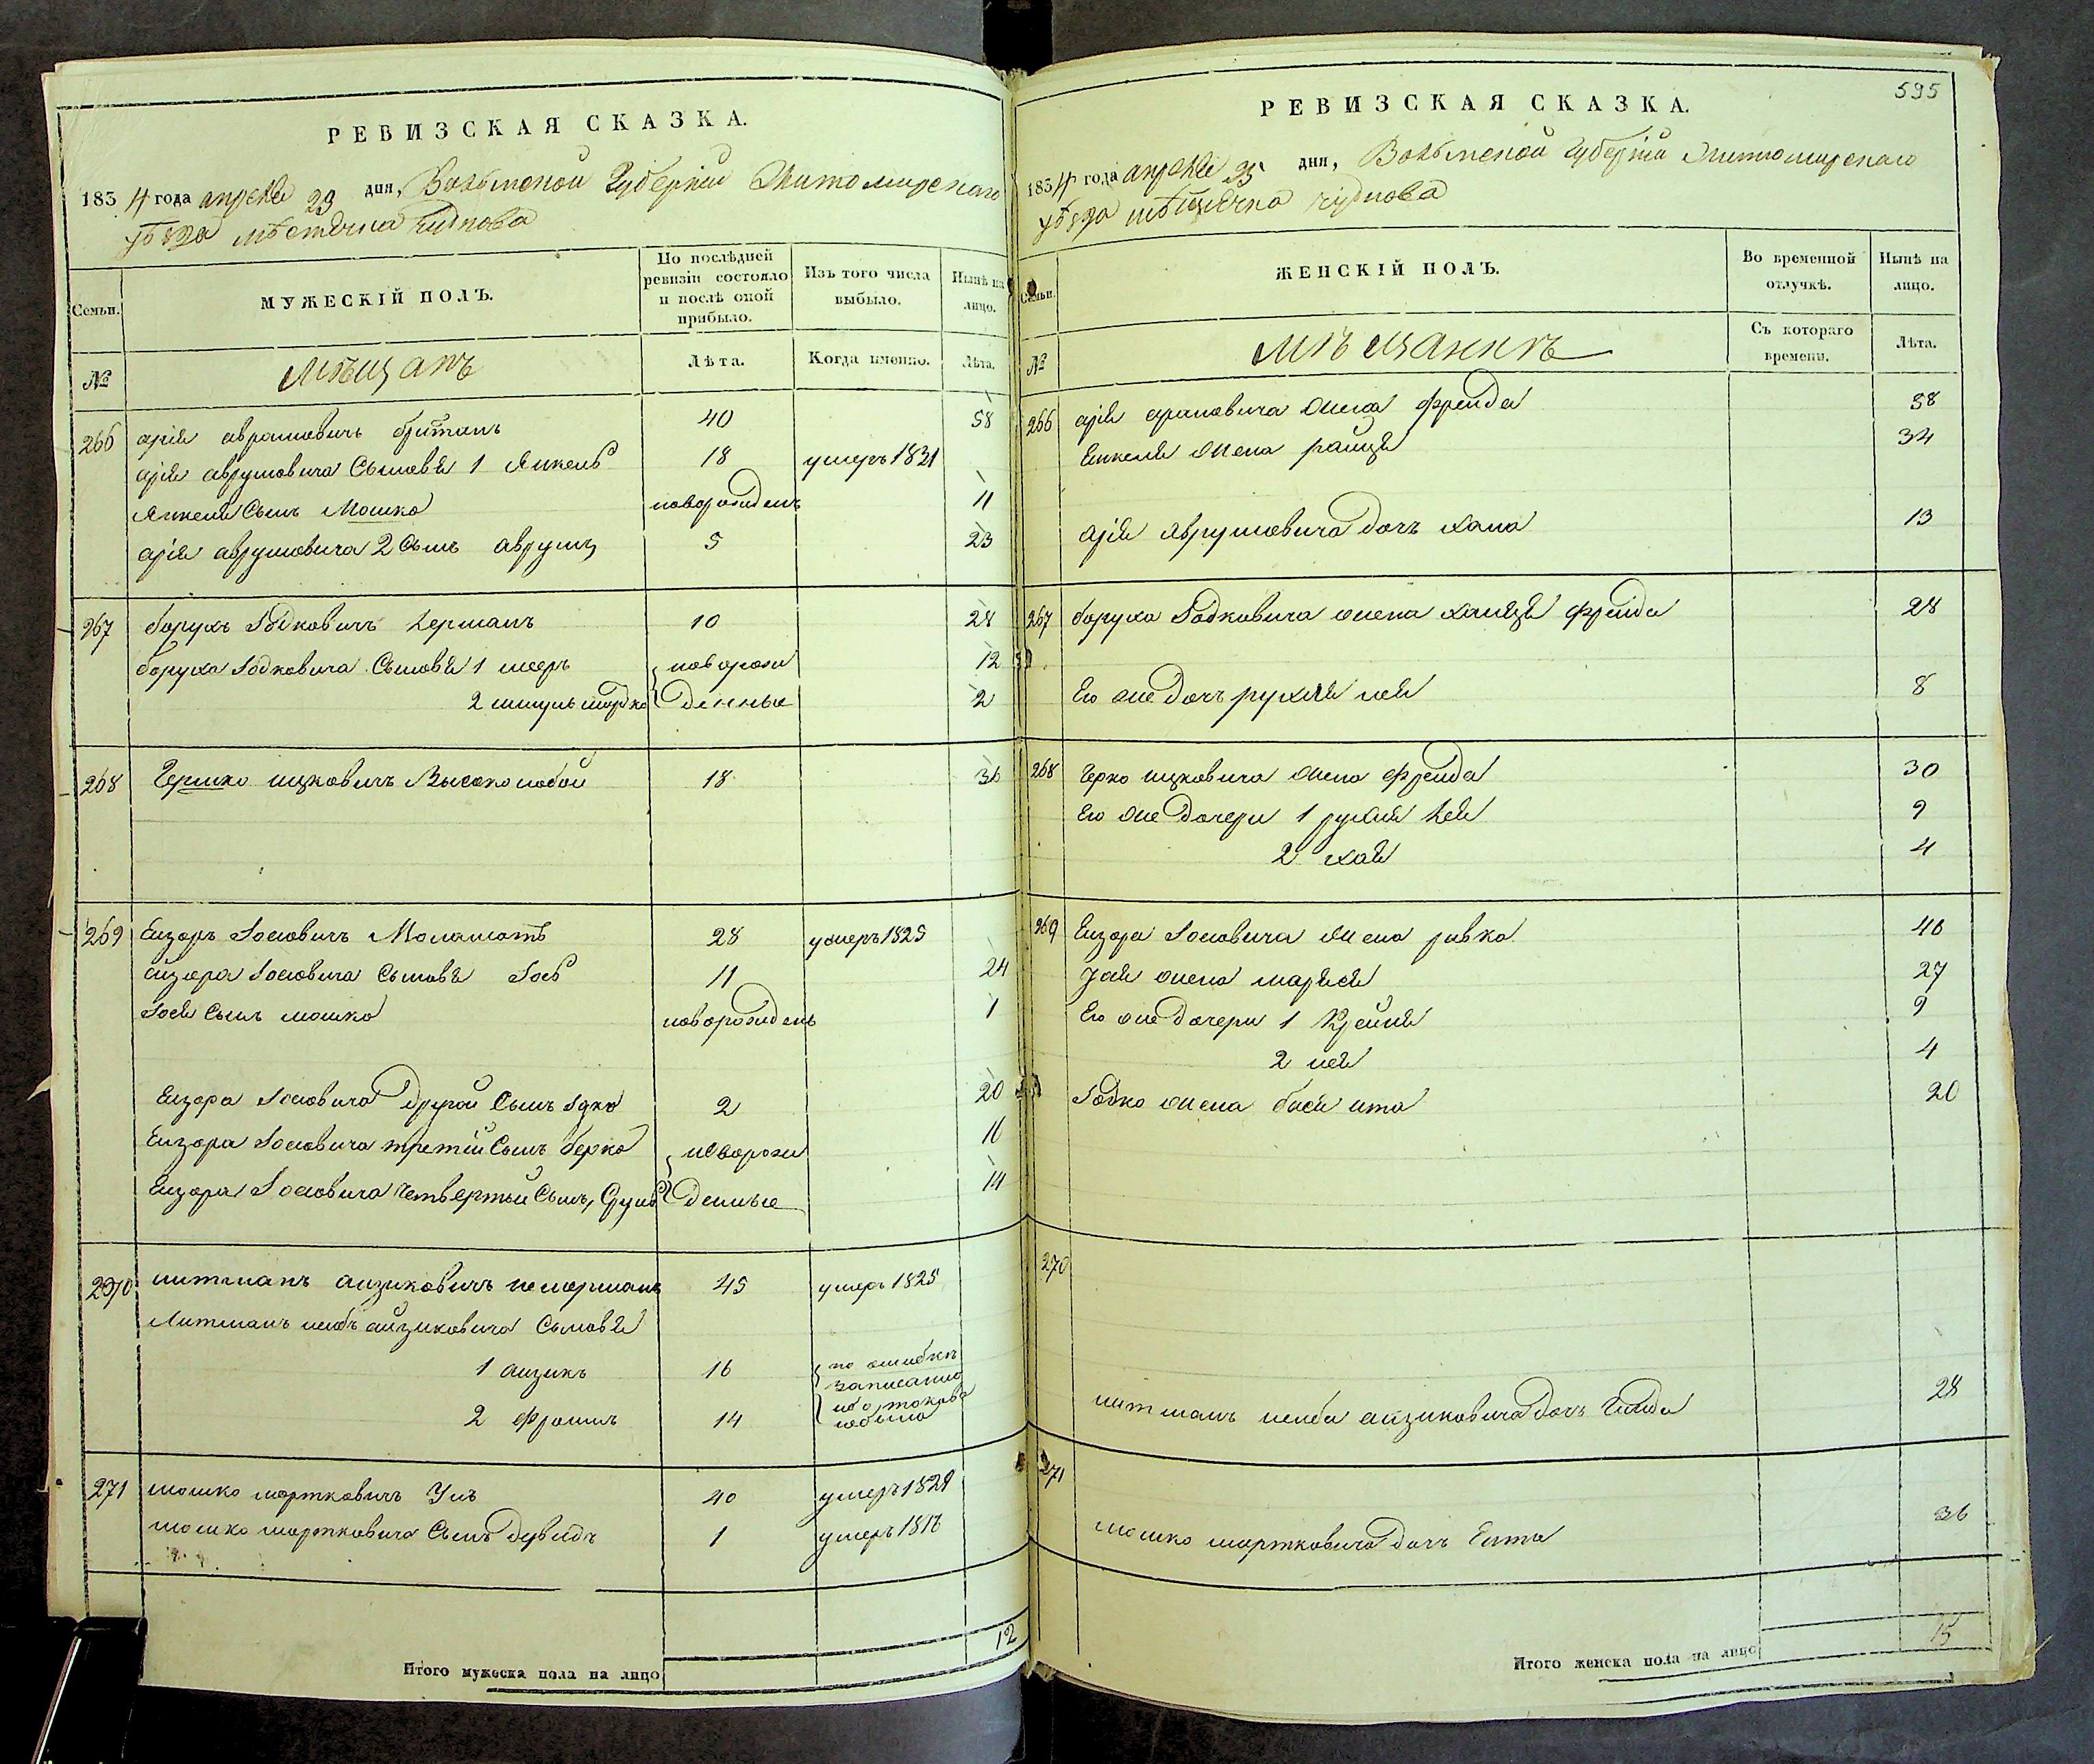 РЕВИЗСКАЯ СКАЗКА.
1834 года апреля 23 дня, Волынской Губерніи Житомирскаго
уѣзда мѣстечка Чуднова
Семьи.
МУЖЕСКІЙ ПОЛЪ.
По послѣдней ревизіи состояло и послѣ оной прибыло.
Изъ того числа выбыло.
Нынѣ на лицо.
№
Мѣщанъ
Лѣта.
Когда именно.
Лѣта.
266 арія аврамовичъ 40 58
арія аврумовича Сыновя 1 Янкель 18 умеръ 1831
Янкеля Сынъ Мошко новорожденъ 11
арія аврумовича 2 Сынъ аврумъ 5 23
267 борухъ Іодковичъ 10 28
боруха Іодковича Сыновя 1 мееръ новорож 12
2 шмуль мордко денные 2
268 Гершко ицковичъ Высоколобой 18 36
269 Еизоръ Іосіовичъ 28 умеръ 1825
Іосіовича Сыновя Іось 11 24
Іося Сынъ мошко новорожденъ 1
Еизора Іосіовича другой Сынъ Ідко 2 20
Еизора Іосіовича третій Сынъ берко новорож 16
Еизора Іосіовича Четвертый Сынъ, Сруль денные 14
270 литманъ аизиковичъ 45 умеръ 1825
Литманъ лейбъ айзиковича Сыновя
1 аизикъ 16 по ошибкѣ записано
2 Фроимъ 14 ибо такова небыло
271 мошко мортковичъ 40 умеръ 1829
мошко мортковича Сынъ дувидъ 1 умеръ 1818
Итого мужеска пола на лицо 12
595
РЕВИЗСКАЯ СКАЗКА.
1834 года апреля 25 дня, Волынской Губерніи Житомирскаго
уѣзда мѣстечка Чуднова
Семьи.
ЖЕНСКІЙ ПОЛЪ.
Во временной отлучкѣ.
Нынѣ на лицо.
№
Мѣщанкѣ
Съ котораго времени.
Лѣта.
266 арія жена Фреида 58
Енкеля жена раица 34
арія Аврумовича дочь хана 13
267 боруха Іодковича жена Фреіда 28
Его же дочь рухля лея 8
268 Герко ицковича жена Фреида 30
Его же дочери 1 9
2 хая 4
269 Еизора Іосіовича жена ривка 46
жена марьяся 27
Его же дочери 1 Крейня 9
2 лея 4
Іодко жена бася ита 20
270
литманъ лейба айзиковича дочь 28
271
мошко мортковича дочь Ента 36
Итого женска пола на лицо 15